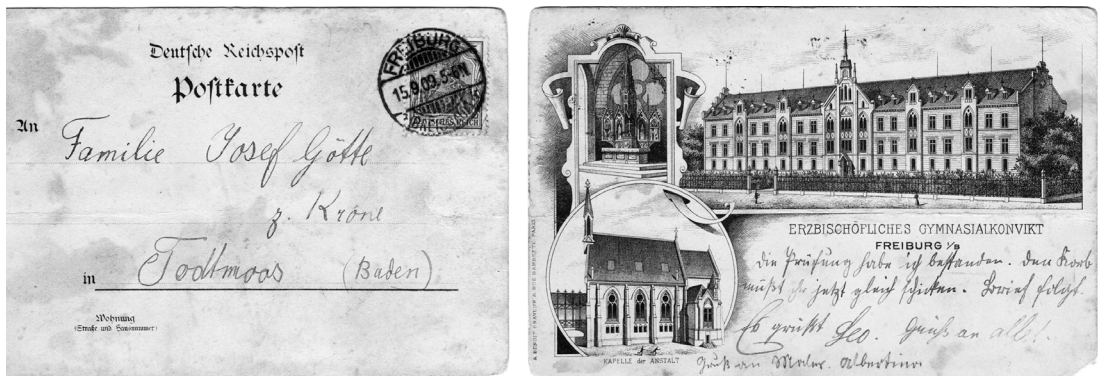 Deutsche Reichspost
Postkarte
FREIBURG
15.9.09.5-6N
An
Familie Josef Götte
z. Krone
in Todtmoos (Baden)
Wohnung
(Straße und Hausnummer)
ERZBISCHÖFLICHES GYMNASIALKONVIKT
FREIBURG i/B
Die Prüfung habe ich bestanden. Den Korb
müßt ihr jetzt gleich schicken. Brief folgt.
Es grüßt Leo. Gruß an alle!
KAPELLE der ANSTALT
Gruß an Albertina